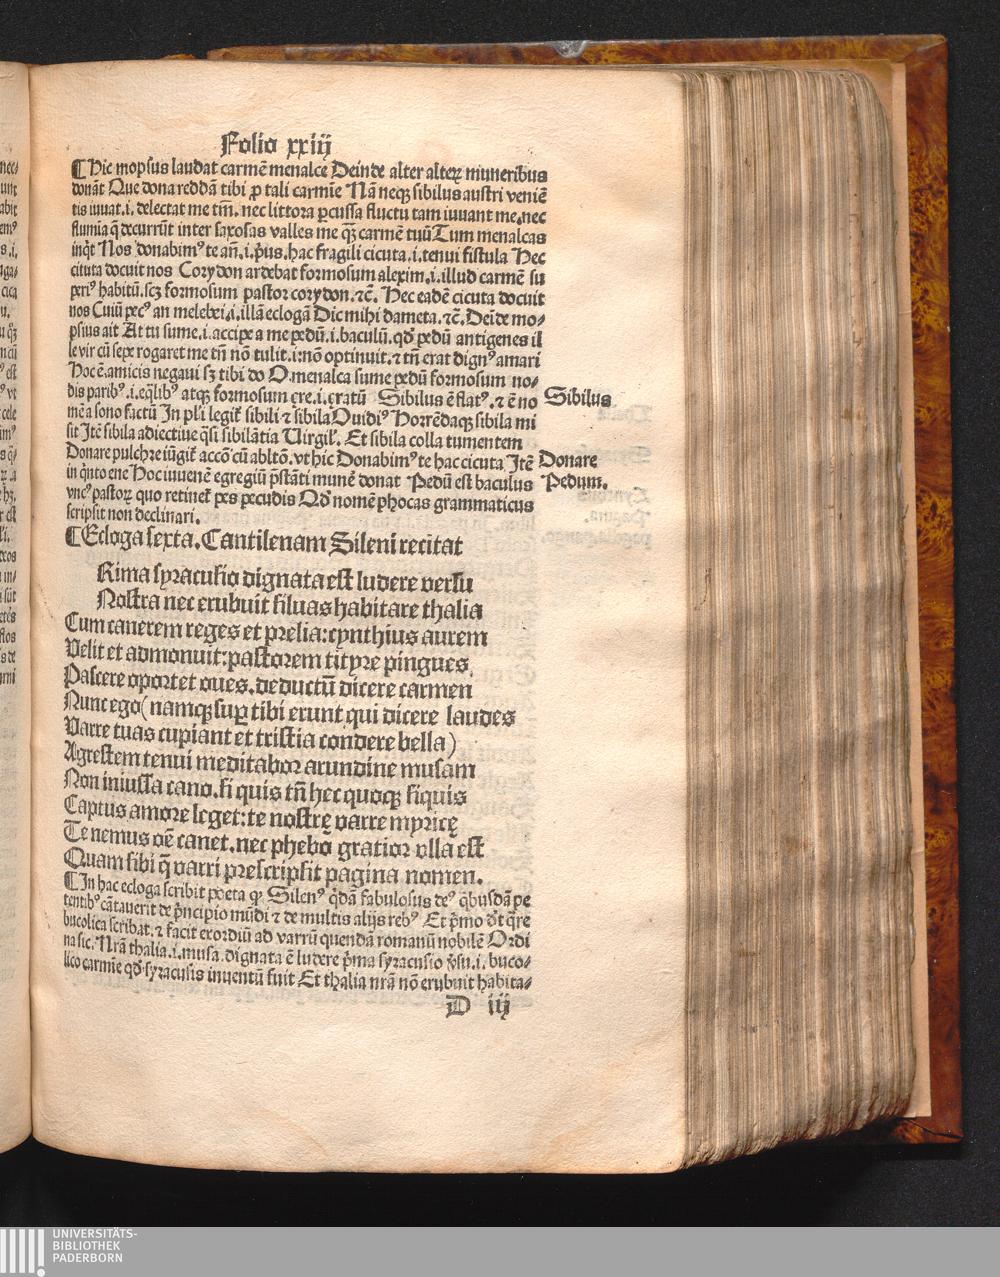 Folio xxiij
¶Hic mopsus laudat carmē menalce Deinde alter alteꝝ muneribus
donāt Que dona reddā tibi ꝓ tali carmīe Nā neqꝫ sibilus austri veniē
tis iuuat.i. delectat me tm̄. nec littora ꝑcussa fluctu tam iuuant me.nec
flumīa q̄ decurrūt inter saxosas valles me qꝫ carmē tuū Tum menalcas
inq̇t Nos donabimꝰ te an̄.i.pͥus.hac fragili cicuta.i.tenui fistula Hec
cicuta docuit nos Corydon ardebat formosum alexim.i.illud carmē su
ꝑriꝰ habitū.scꝫ formosum pastor corydon.⁊c̄. Hec eadē cicuta docuit
nos Cuiū pecꝰ an melebei.i.illā eclogā Dic mihi dameta.⁊c̄. Deīde mo⸗
psius ait At tu sume.i.accipe a me pedū.i.baculū.qd̕ pedū antigenes il
le vir cū sepe rogaret me tn̄ nō tulit.i:nō optinuit.⁊ tn̄ erat dignꝰ amari
hoc ē.amicis negaui sꝫ tibi do O.menalca sume pedū formosum no⸗
dis paribꝰ.i.eq̄libꝰ atqꝫ formosum ere.i.eratū Sibilus ē flatꝰ.⁊ ē no
mē a sono factū In pl̕i legit̕ sibili ⁊ sibila Ouidiꝰ Horrēdaqꝫ sibila mi
sit Itē sibila adiectiue q̄si sibilātia Uirgil̕. Et sibila colla tumentem
Donare pulchre iūgit̕ accō cū abltō.vt hic Donabimꝰ te hac cicuta Itē
in q̇nto ene Hoc iuuenē egregiū p̄stāti munē donat Pedū est baculus
vncꝰ pastoꝝ quo retinet̕ pes pecudis Qd̕ nomē phocas grammaticus
scripsit non declinari.
Sibilus
Donare
Pedum.
¶Ecloga sexta.Cantilenam Sileni recitat
Rima syracusio dignata est ludere versu
Nostra nec erubuit siluas habitare thalia
Cum canerem reges et prelia:cynthius aurem
Velit et admonuit:pastorem tityre pingues.
Pascere oportet oues.deductū dicere carmen
Nunc ego(namqꝫ suꝑ tibi erunt qui dicere laudes
Varre tuas cupiant et tristia condere bella)
Agrestem tenui meditabor arundine musam
Non iniussa cano.si quis tn̄ hec quoqꝫ siquis
Captus amore leget:te nostrę varre myricę
Te nemus oē canet.nec phebo gratior vlla est
Quam sibi q̄ varri prescripsit pagina nomen.
¶In hac ecloga scribit poeta ꝙ Silenꝰ q̇dā fabulosus deꝰ q̇busdā pe
tentibꝰ cātauerit de pͥncipio mūdi ⁊ de multis alijs rebꝰ Et pͥmo dr̄t q̄re
bucolica scribat.⁊ facit exordiū ad varrū quendā romanū nobilē Ordi
na sic.Nr̄a thalia.i.musa.dignata ē ludere pͥma syracusio v̕su.i.buco⸗
lico carmīe qd̕ syracusis inuentū fuit Et thalia nr̄a nō erubuit habita⸗
D iij
UNIVERSITÄTS-
BIBLIOTHEK
PADERBORN